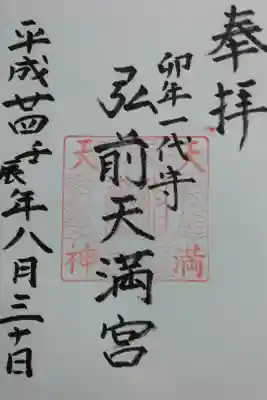 奉拝
卯年一代寺
弘前天満宮
平成廿四壬辰年八月三十日
天満
天神